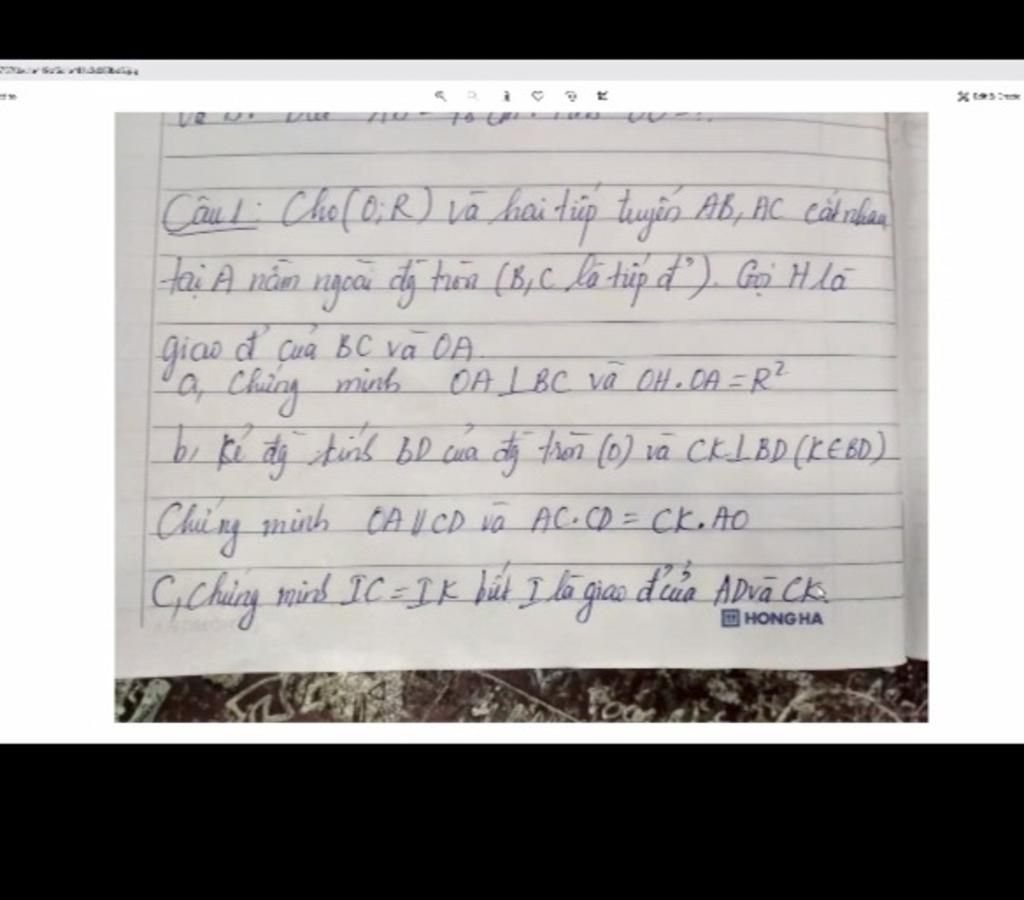 Câu 1: Cho (O;R) và hai tiếp tuyến AB, AC cắt nhau
tại A nằm ngoài đg tròn (B,C là tiếp đ'). Gọi H là
giao đ' của BC và OA.
a, Chứng minh OA⊥BC và OH.OA = R²
b, Kẻ đg kính BD của đg tròn (O) và CK⊥BD (K∈BD)
Chứng minh OA // CD và AC.CD = CK.AO
C, Chứng minh IC = IK biết I là giao đ' của AD và CK.
HONG HA